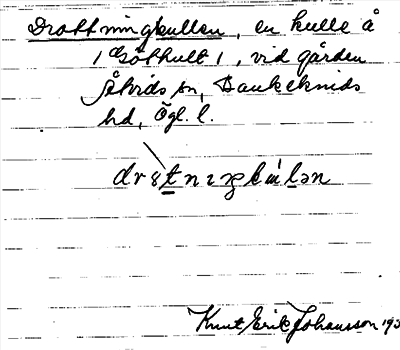 Drottningkullen, en kulle å
1 Göthult 1, vid gården
Åtvids sn, Bankekinds
hd, Ögl. l.
Knut Erik Johansson 193